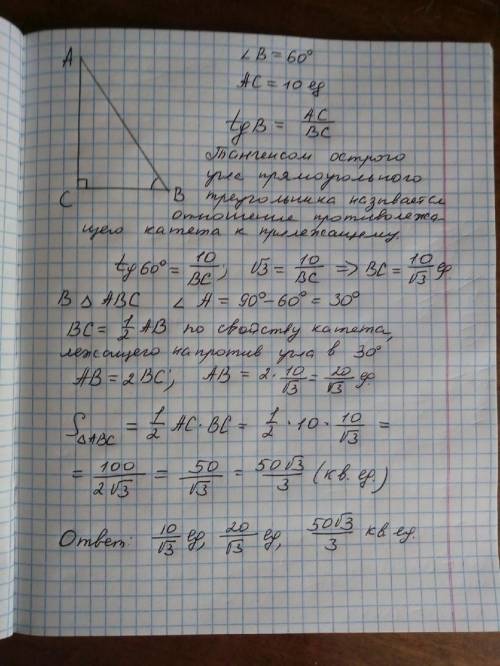 A
C
B
∠B = 60°
AC = 10 ед
tg B = AC/BC
Тангенсом острого
угла прямоугольного
треугольника называется
отношение противолежа-
щего катета к прилежащему.
tg 60° = 10/BC; √3 = 10/BC => BC = 10/√3 ед.
В △ ABC ∠ A = 90° - 60° = 30°
BC = 1/2 AB по свойству катета,
лежащего напротив угла в 30°
AB = 2 BC; AB = 2 · 10/√3 = 20/√3 ед.
S△ABC = 1/2 AC · BC = 1/2 · 10 · 10/√3 =
= 100/2√3 = 50/√3 = 50√3/3 (кв. ед.)
Ответ: 10/√3 ед, 20/√3 ед, 50√3/3 кв ед.